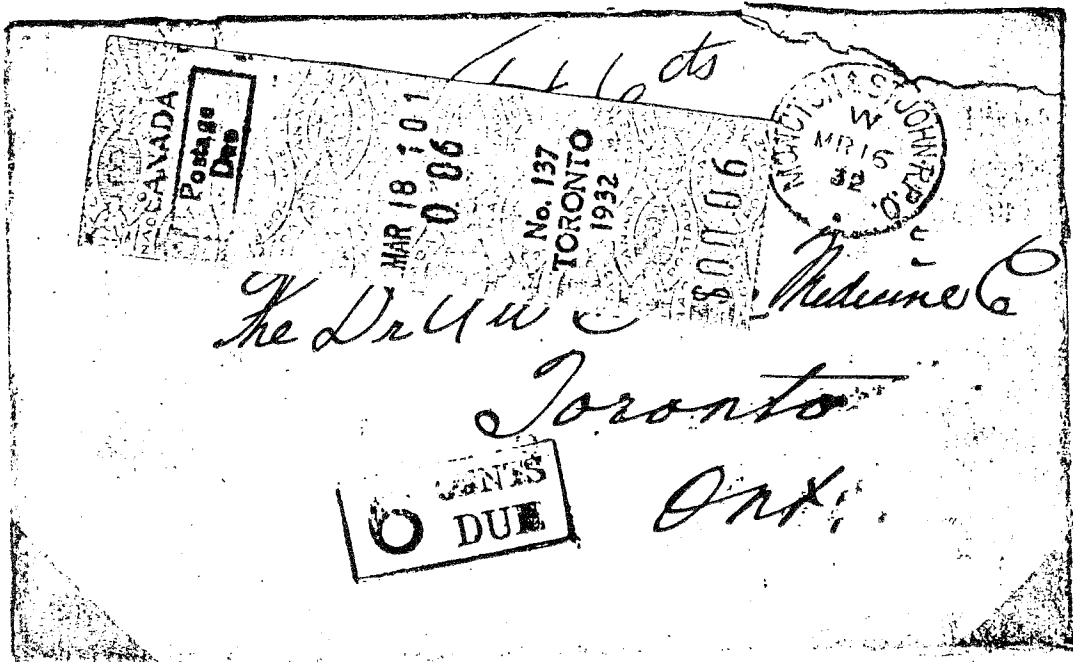 6 cts
CANADA
Postage
Due
MAR 18 101
0.06
No. 137
TORONTO
1932
$00006
MONCTON & ST JOHN R.P.O.
W
MR 16
32
The Dr
Medicine Co
Toronto
Ont.
6 CENTS
DUE